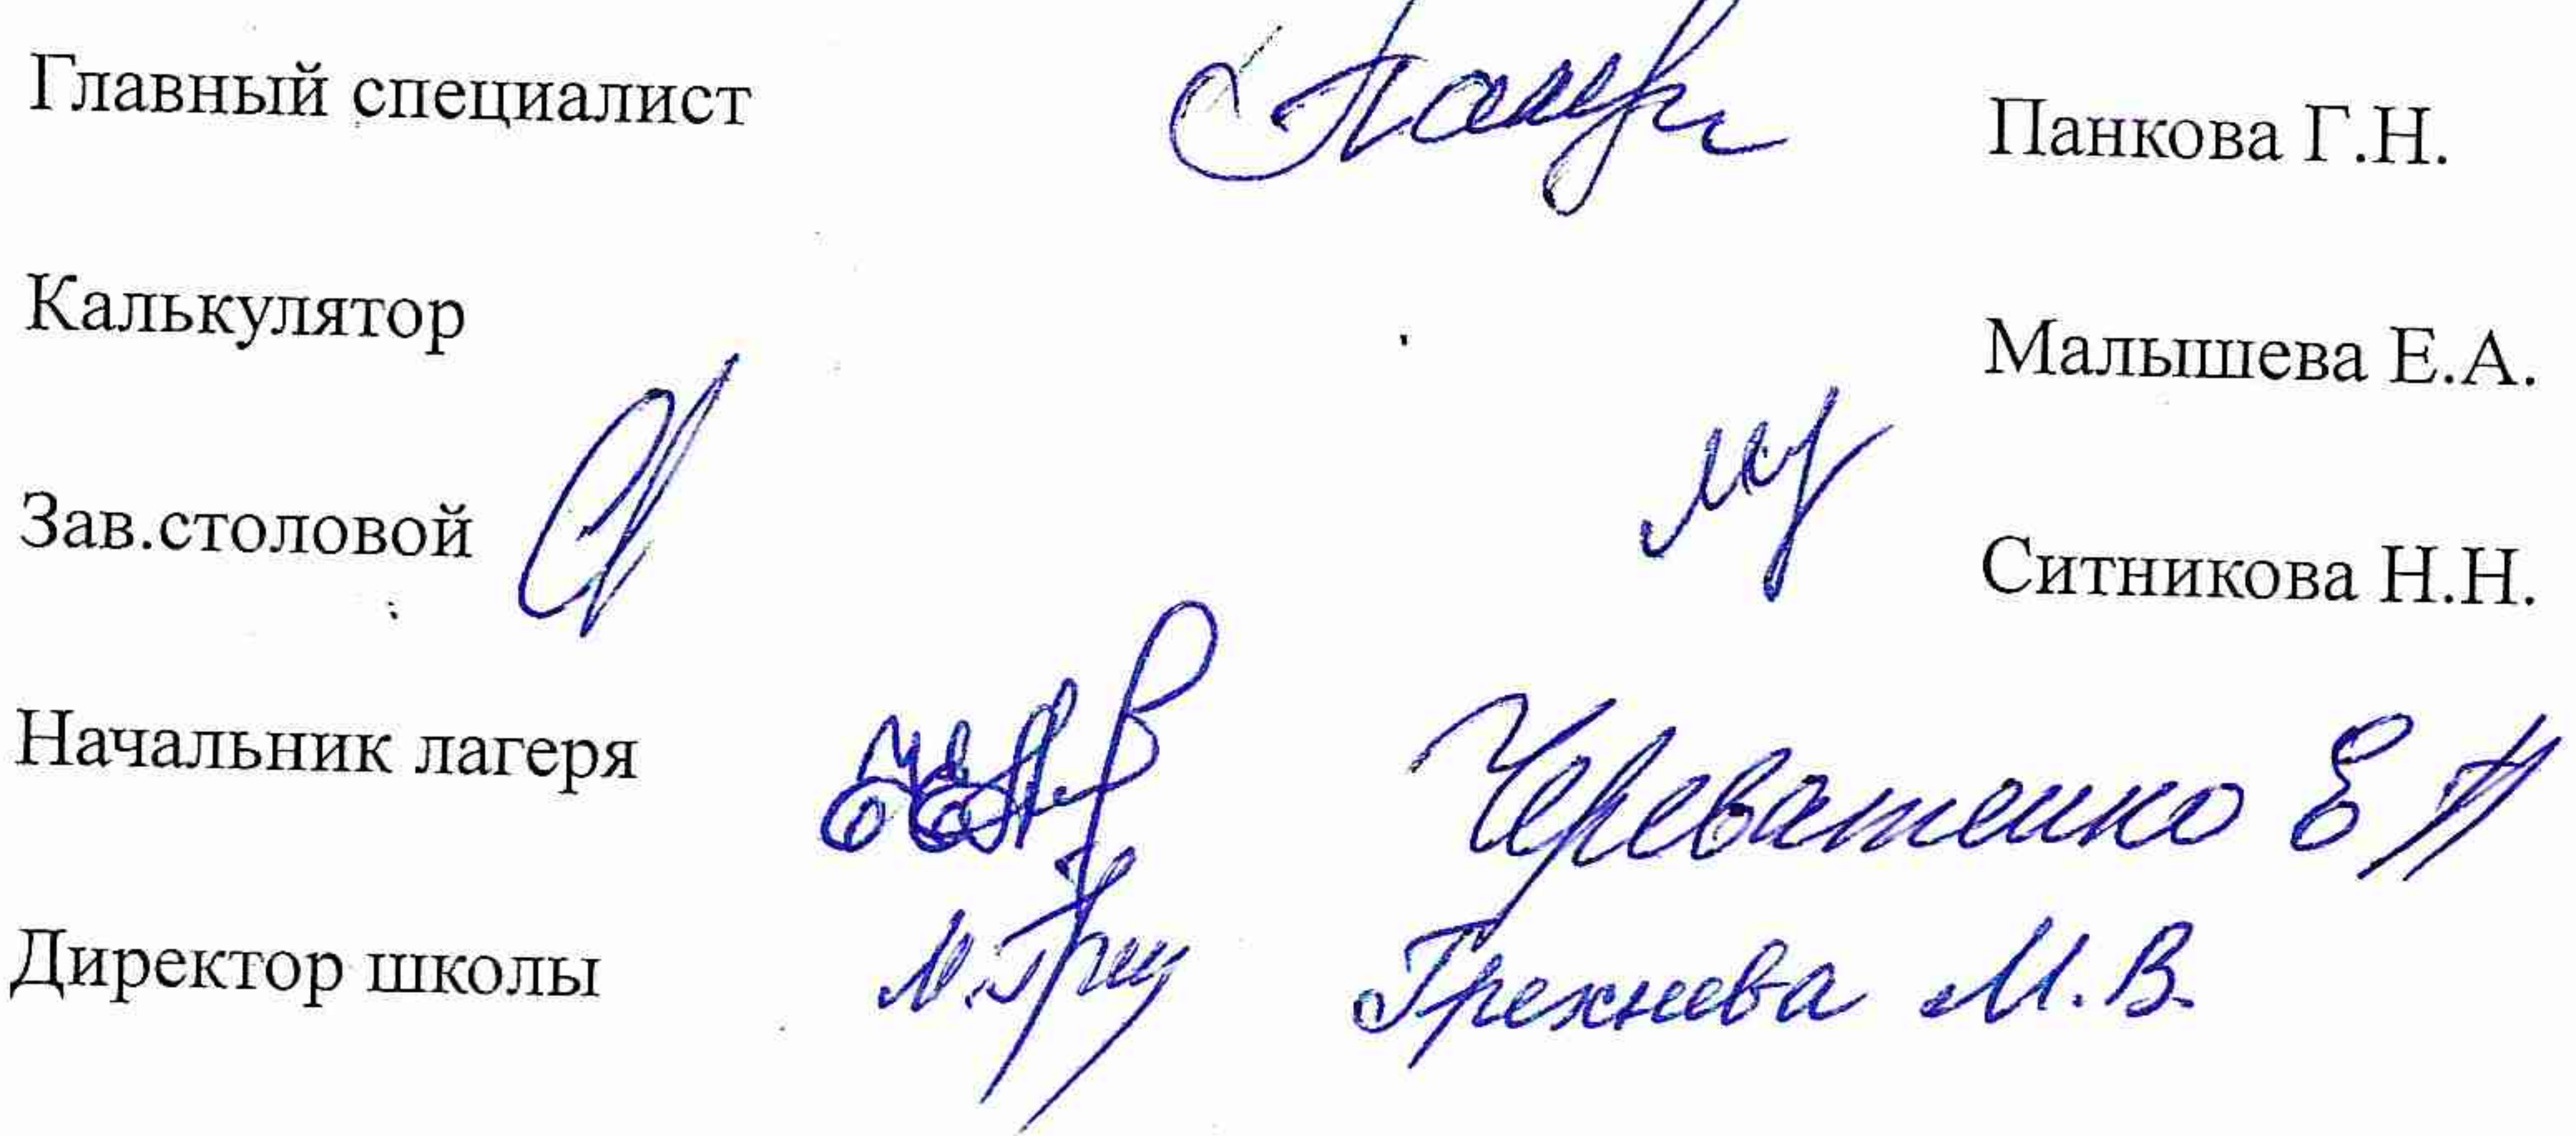 Главный специалист Панкова Г.Н.
Калькулятор Малышева Е.А.
Зав.столовой Ситникова Н.Н.
Начальник лагеря Череватенко Е
Директор школы Грехнева М.В.